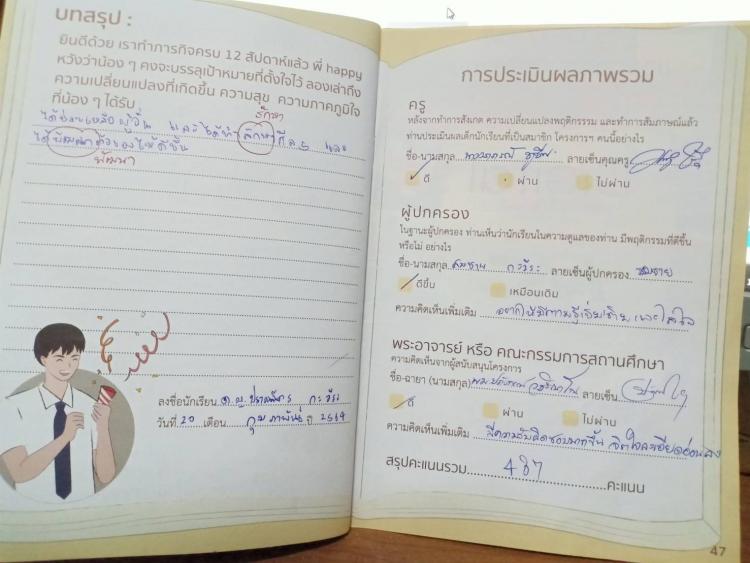 บทสรุป :
ยินดีด้วย เราทำภารกิจครบ 12 สัปดาห์แล้ว พี่ happy
หวังว่าน้อง ๆ คงจะบรรลุเป้าหมายที่ตั้งใจไว้ ลองเล่าถึง
ความเปลี่ยนแปลงที่เกิดขึ้น ความสุข ความภาคภูมิใจ
ที่น้อง ๆ ได้รับ
รักษา
ได้ช่วยเหลือผู้อื่น และได้ทำ ศีล 5 และ
ได้ ตัวเองให้ดีขึ้น
พัฒนา
ลงชื่อนักเรียน ด.ญ.
วันที่ 20 เดือน กุมภาพันธ์ ปี 2564
การประเมินผลภาพรวม
ครู
หลังจากทำการสังเกต ความเปลี่ยนแปลงพฤติกรรม และทำการสัมภาษณ์แล้ว
ท่านประเมินผลเด็กนักเรียนที่เป็นสมาชิก โครงการฯ คนนี้อย่างไร
ชื่อ-นามสกุล ลายเซ็นคุณครู
ดี ผ่าน ไม่ผ่าน
ผู้ปกครอง
ในฐานะผู้ปกครอง ท่านเห็นว่านักเรียนในความดูแลของท่าน มีพฤติกรรมที่ดีขึ้น
หรือไม่ อย่างไร
ชื่อ-นามสกุล สมชาย ลายเซ็นผู้ปกครอง สมชาย
ดีขึ้น เหมือนเดิม
ความคิดเห็นเพิ่มเติม
พระอาจารย์ หรือ คณะกรรมการสถานศึกษา
ความคิดเห็นจากผู้สนับสนุนโครงการ
ชื่อ-ฉายา (นามสกุล) ลายเซ็น
ดี ผ่าน ไม่ผ่าน
ความคิดเห็นเพิ่มเติม มีความรับผิดชอบมากขึ้น จิตใจละเอียดอ่อนลง
สรุปคะแนนรวม 487 คะแนน
47